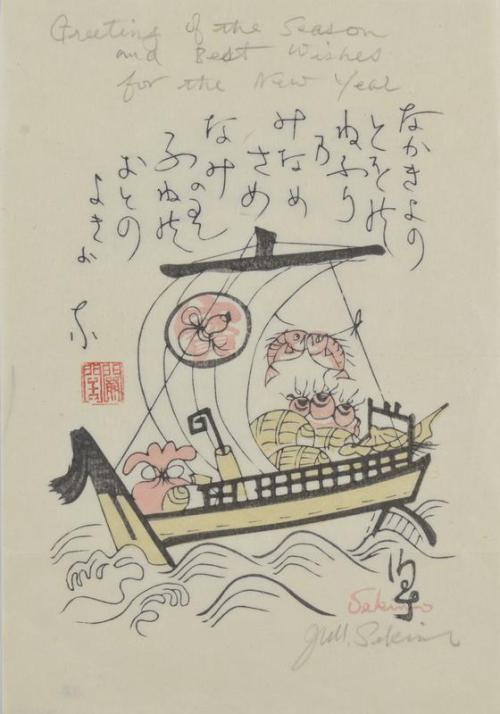 Greeting of the Season
and Best Wishes
for the New Year
なかきよの
とをの
ねふり
乃
みなめ
さめ
なみのり
ふねの
おとの
よきか
な
Sekino
Jun. Sekino